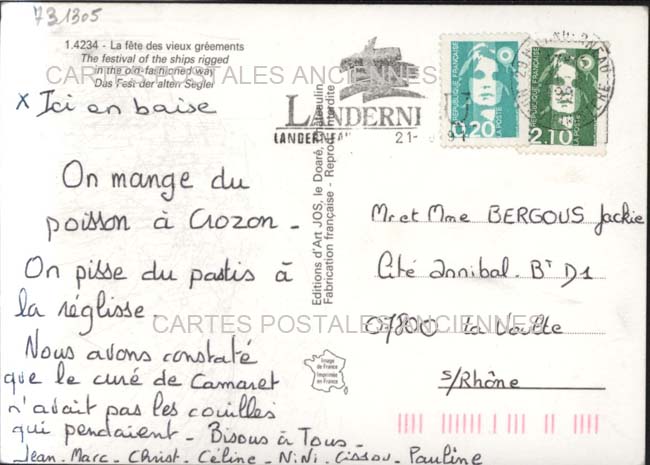 731305
1.4234 - La fête des vieux gréements
The festival of the ships rigged
in the old-fashioned way
Das Fest der alten Segler
CARTES POSTALES ANCIENNES
x Ici on baise
On mange du
poisson à Crozon -
On pisse du pastis à
la réglisse.
Nous avons constaté
que le curé de Camaret
n'avait pas les couilles
qui pendaient - Bisous à Tous -
Jean-Marc - Christ - Céline - NiNi - Cissou - Pauline
Editions d'Art JOS, le Doaré, Châteaulin
Fabrication française - Reproduction interdite
LANDERNE
LANDERNEAU
21-
REPUBLIQUE FRANÇAISE
0,20
LA POSTE
REPUBLIQUE FRANÇAISE
2,10
LA POSTE
Mr et Mme BERGOUS Jackie
Cité Annibal. Bt D1
07800 La Voulte
s/Rhône
CARTES POSTALES ANCIENNES
Image
de France
Imprimée
en France